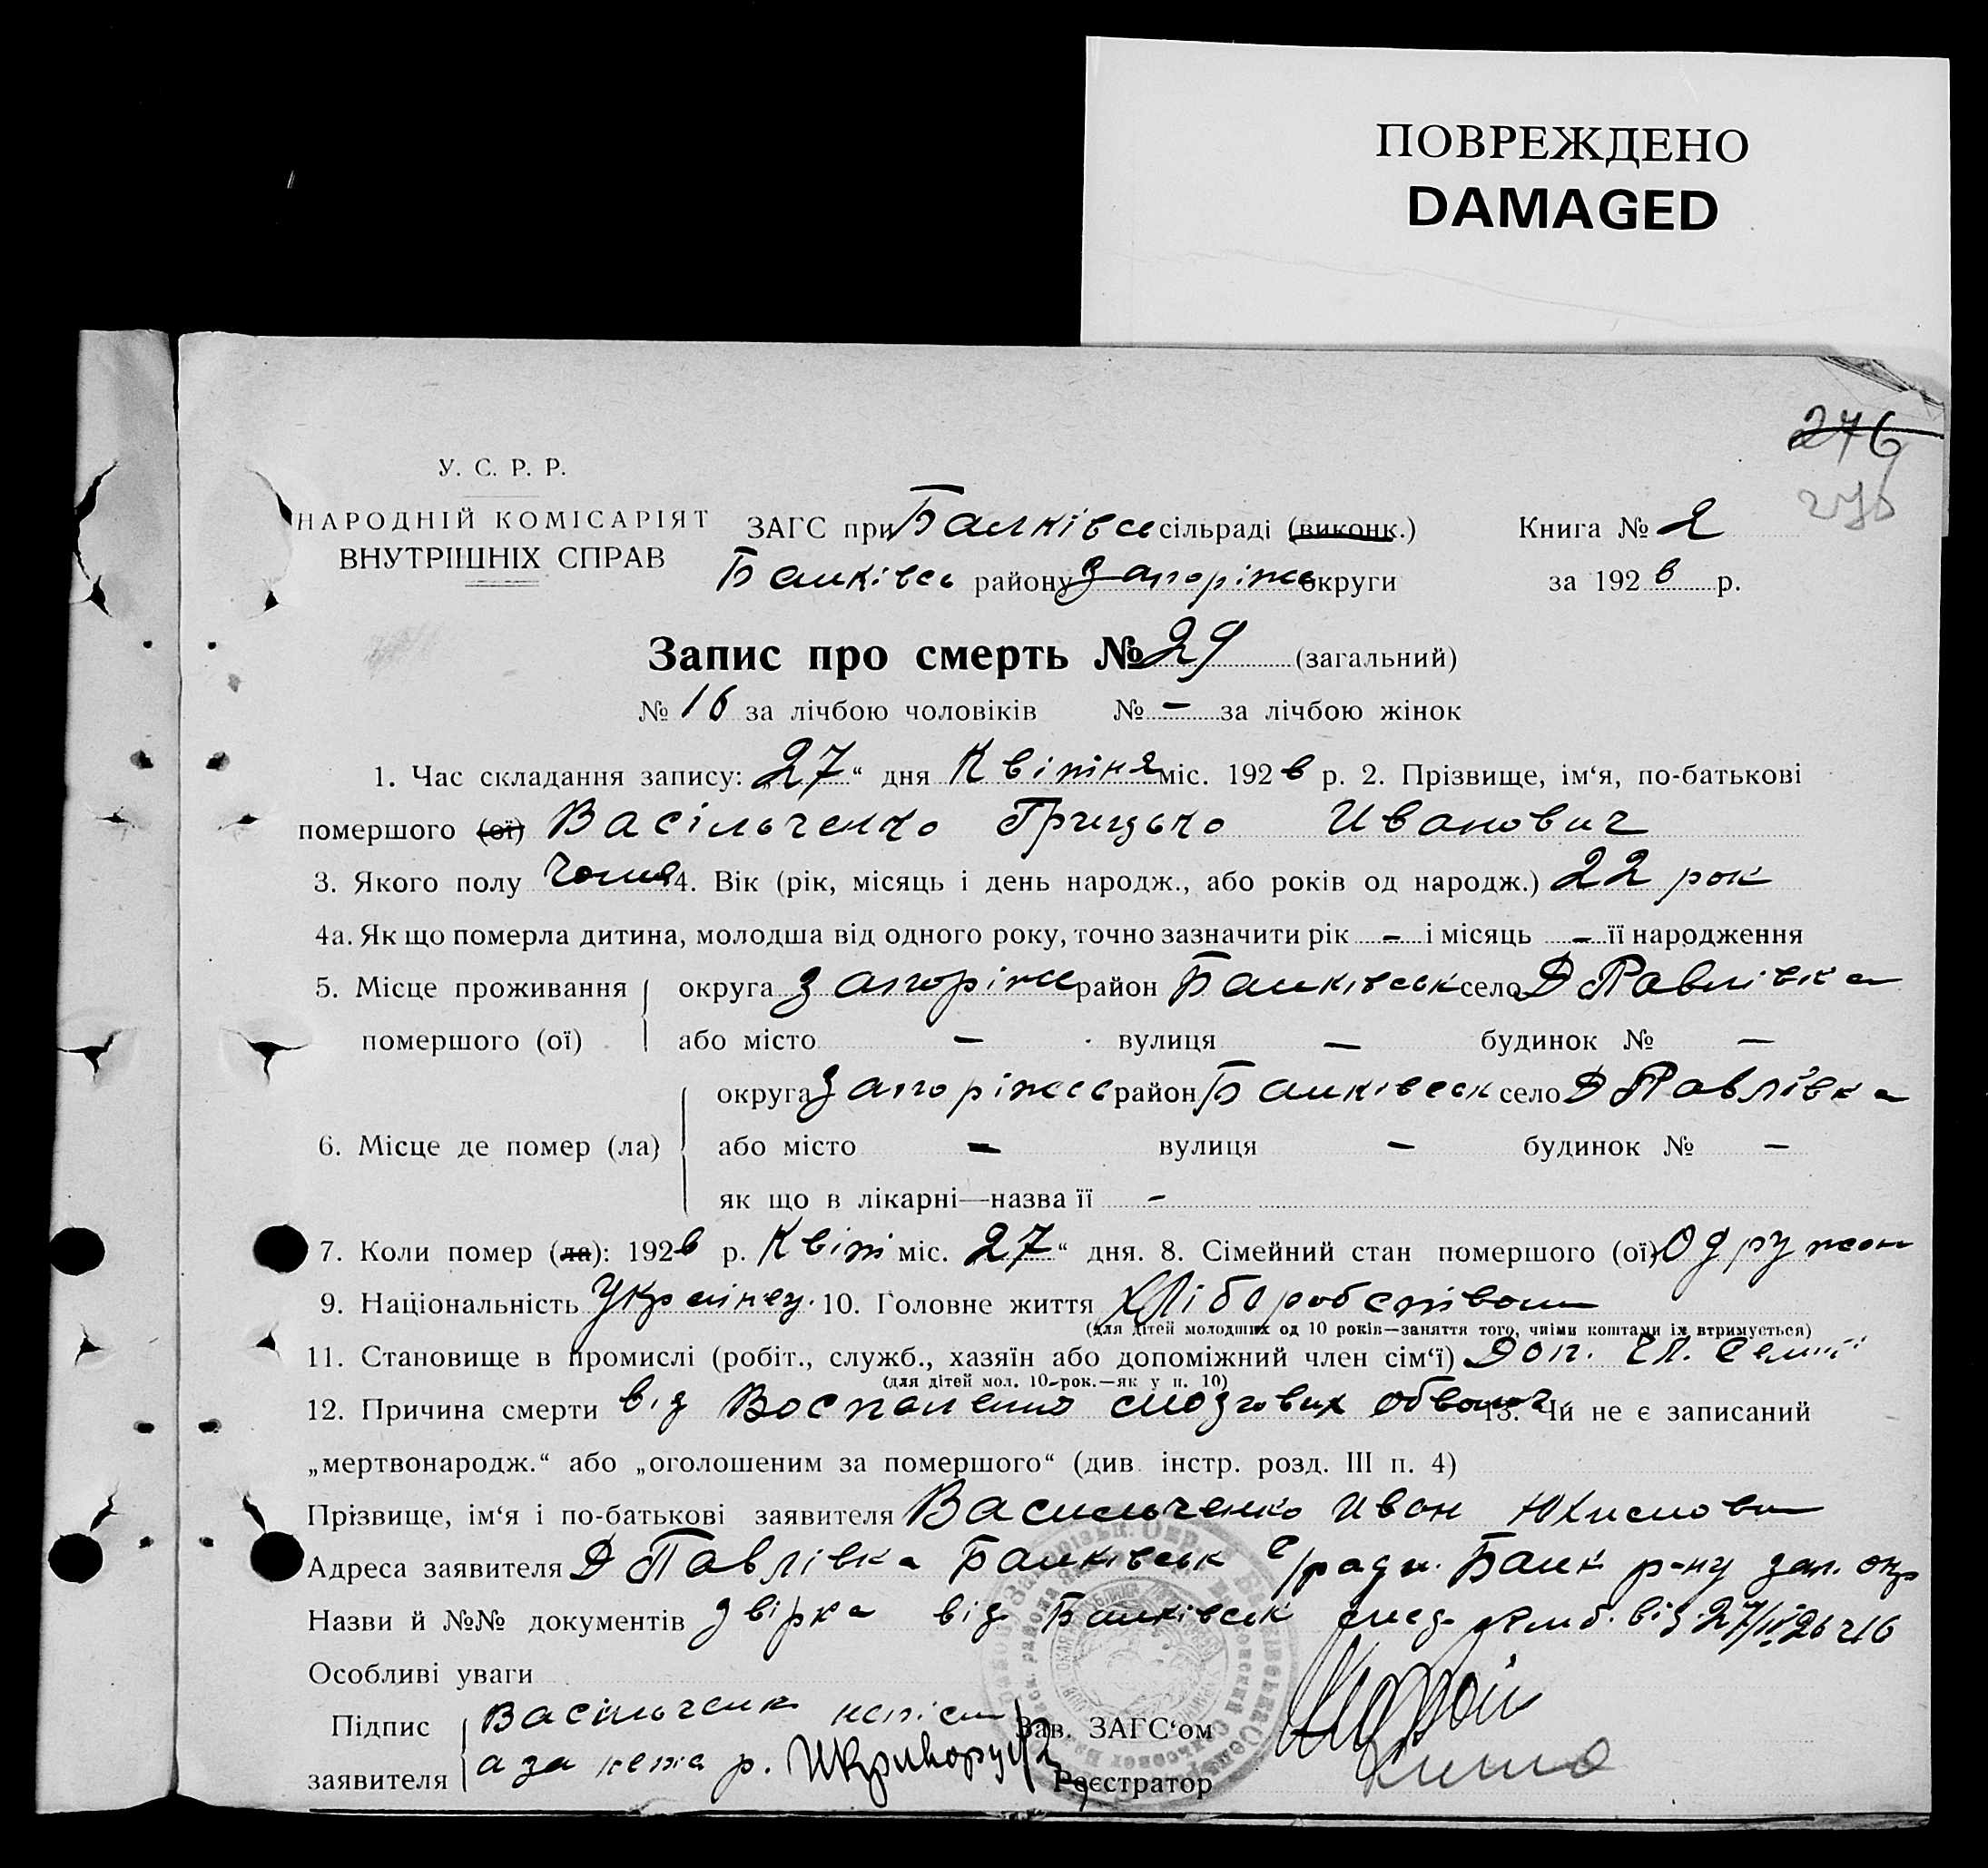 ПОВРЕЖДЕНО
DAMAGED
276
276
У. С. Р. Р.
НАРОДНІЙ КОМІСАРІЯТ
ВНУТРІШНІХ СПРАВ
ЗАГС при Балківсь сільраді (виконк.) Книга № 2
Балківсь району Запоріжс округи за 1926 р.
Запис про смерть № 29 (загальний)
№ 16 за лічбою чоловіків № – за лічбою жінок
1. Час складання запису: „27“ дня Квітня міс. 1926 р. 2. Прізвище, ім‘я, по-батькові
помершого (ої) Васільченко Грицько Иванович
3. Якого полу 4. Вік (рік, місяць і день народж., або років од народж.) 22 рок
4а. Як що померла дитина, молодша від одного року, точно зазначити рік – і місяць – її народження
5. Місце проживання округа Запоріжс район Балківськ село Д Павлівка
помершого (ої) або місто – вулиця – будинок № –
округа Запоріжсь район Балківськ село Д Павлівка
6. Місце де помер (ла) або місто – вулиця – будинок № –
як що в лікарні—назва її –
7. Коли помер (ла): 1926 р. Квіт міс. 27“ дня. 8. Сімейний стан помершого (ої) Одружон
9. Національність Українец. 10. Головне життя Хліборобством
(для дітей молодших од 10 років—заняття того, чиїми коштами їх втримується)
11. Становище в промислі (робіт., служб., хазяїн або допоміжний член сім‘ї) Доп. чл. семії
(для дітей мол. 10-рок.—як у п. 10)
12. Причина смерти від Воспаленио смозгових обволоч. 13. Чи не є записаний
„мертвонародж.“ або „оголошеним за помершого“ (див. інстр. розд. III п. 4)
Прізвище, ім‘я і по-батькові заявителя Васильченко Иван
Адреса заявителя Д Павлівка Балківськ с/ради Балк р-ну зап. окр
Назви й №№ документів звірка від Балківськ мед. амб. від 27/IV 26 ч 16
Особливі уваги
Підпис Васільченк непісм
заявителя а за него р.
Зав. ЗАГС‘ом
Реєстратор